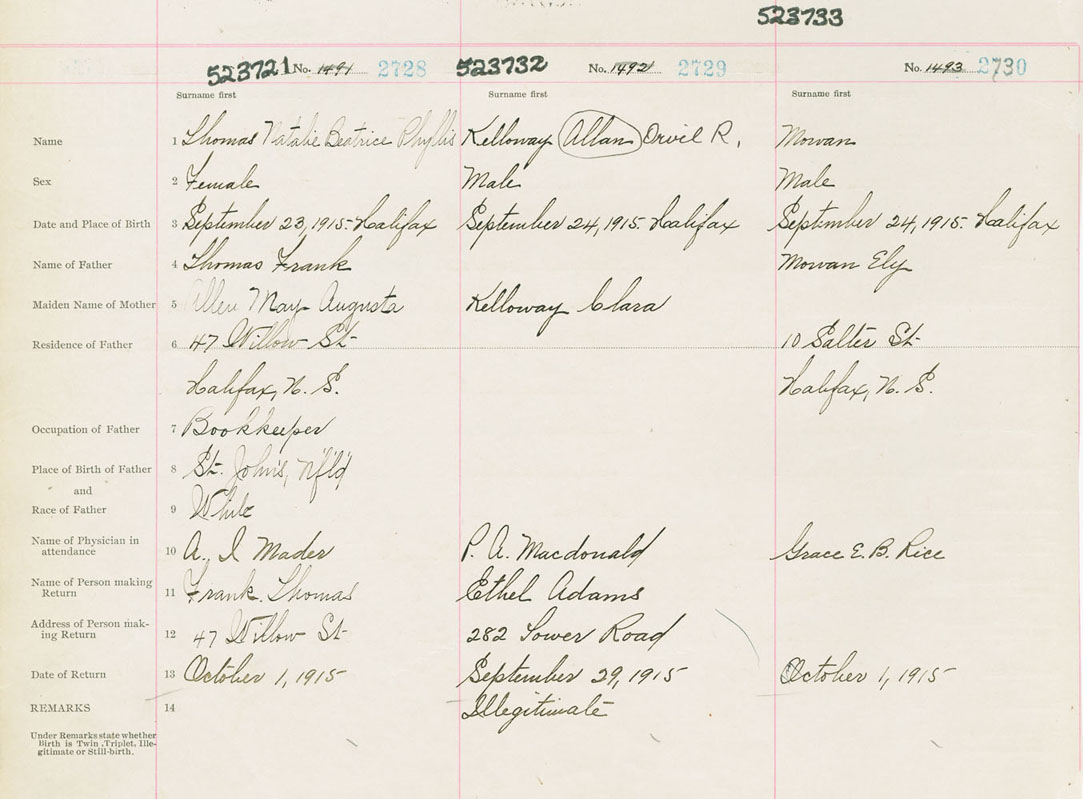 523733
523721 No. 1491 2728 523732 No. 1492 2729 No. 1493 2730
Surname first Surname first Surname first
Name 1 Thomas Natalie Beatrice Phyllis Kelloway Allan Orvil R. Mowan
Sex 2 Female Male Male
Date and Place of Birth 3 September 23, 1915 - Halifax September 24, 1915 - Halifax September 24, 1915 - Halifax
Name of Father 4 Thomas Frank Mowan Ely
Maiden Name of Mother 5 Allen May Augusta Kelloway Clara
Residence of Father 6 47 Willow St- 10 Salter St-
Halifax, N. S. Halifax, N. S.
Occupation of Father 7 Bookkeeper
Place of Birth of Father 8 St. John's, Nfld
and
Race of Father 9 White
Name of Physician in
attendance 10 A. I Mader P. A. Macdonald Grace E. B. Rice
Name of Person making
Return 11 Frank Thomas Ethel Adams
Address of Person mak-
ing Return 12 47 Willow St- 282 Tower Road
Date of Return 13 October 1, 1915 September 29, 1915 October 1, 1915
REMARKS 14 Illegitimate
Under Remarks state whether
Birth is Twin, Triplet, Ille-
gitimate or Still-birth.